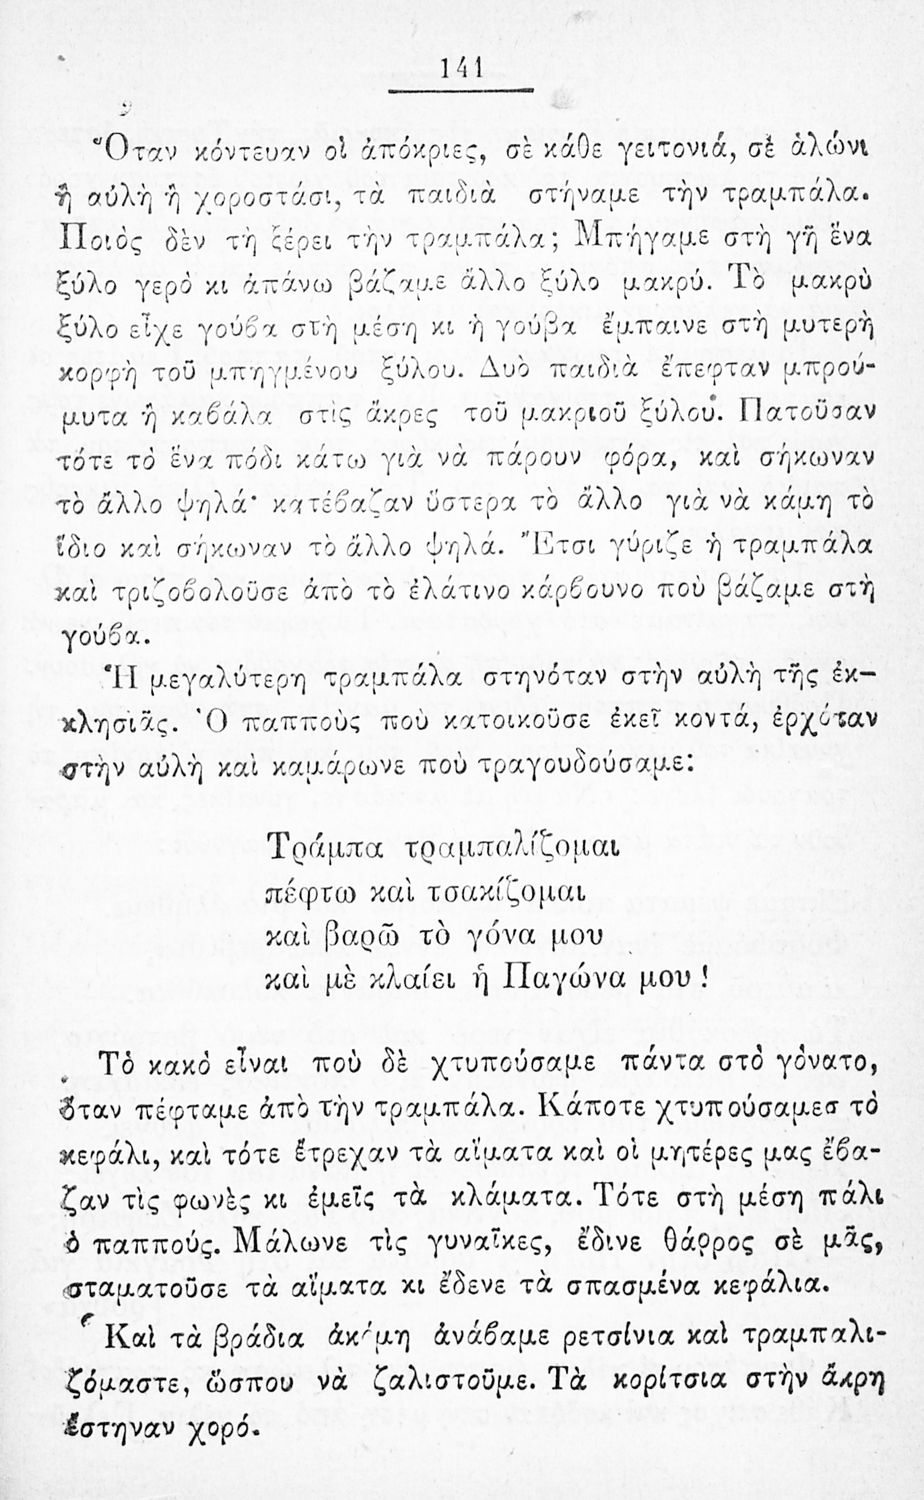 141
Ὅταν κόντευαν οἱ ἀπόκριες, σὲ κάθε γειτονιά, σὲ ἁλώνι
ἢ αὐλὴ ἢ χοροστάσι, τὰ παιδιὰ στήναμε τὴν τραμπάλα.
Ποιὸς δὲν τὴ ξέρει τὴν τραμπάλα; Μπήγαμε στὴ γῆ ἕνα
ξύλο γερὸ κι ἀπάνω βάζαμε ἄλλο ξύλο μακρύ. Τὸ μακρὺ
ξύλο εἶχε γούϐα στὴ μέση κι ἡ γούβα ἔμπαινε στὴ μυτερὴ
κορφὴ τοῦ μπηγμένου ξύλου. Δυὸ παιδιὰ ἔπεφταν μπρού-
μυτα ἢ καϐάλα στὶς ἄκρες τοῦ μακριοῦ ξύλου. Πατοῦσαν
τότε τὸ ἕνα πόδι κάτω γιὰ νὰ πάρουν φόρα, καὶ σήκωναν
τὸ ἄλλο ψηλά· κατέϐαζαν ὕστερα τὸ ἄλλο γιὰ νὰ κάμη τὸ
ἴδιο καὶ σήκωναν τὸ ἄλλο ψηλά. Ἔτσι γύριζε ἡ τραμπάλα
καὶ τριζοϐολοῦσε ἀπὸ τὸ ἐλάτινο κάρϐουνο ποὺ βάζαμε στὴ
γούϐα.
Ἡ μεγαλύτερη τραμπάλα στηνόταν στὴν αὐλὴ τῆς ἐκ-
κλησιᾶς. Ὁ παπποὺς ποὺ κατοικοῦσε ἐκεῖ κοντά, ἐρχόταν
στὴν αὐλὴ καὶ καμάρωνε ποὺ τραγουδούσαμε:
Τράμπα τραμπαλίζομαι
πέφτω καὶ τσακίζομαι
καὶ βαρῶ τὸ γόνα μου
καὶ μὲ κλαίει ἡ Παγώνα μου!
Τὸ κακὸ εἶναι ποὺ δὲ χτυπούσαμε πάντα στὸ γόνατο,
ὅταν πέφταμε ἀπὸ τὴν τραμπάλα. Κάποτε χτυπούσαμεσ τὸ
κεφάλι, καὶ τότε ἔτρεχαν τὰ αἵματα καὶ οἱ μητέρες μας ἔϐα-
ζαν τὶς φωνὲς κι ἐμεῖς τὰ κλάματα. Τότε στὴ μέση πάλι
ὁ παππούς. Μάλωνε τὶς γυναῖκες, ἔδινε θάρρος σὲ μᾶς,
σταματοῦσε τὰ αἵματα κι ἔδενε τὰ σπασμένα κεφάλια.
Καὶ τὰ βράδια ἀκόμη ἀνάϐαμε ρετσίνια καὶ τραμπαλι-
ζόμαστε, ὥσπου νὰ ζαλιστοῦμε. Τὰ κορίτσια στὴν ἄκρη
ἔστηναν χορό.